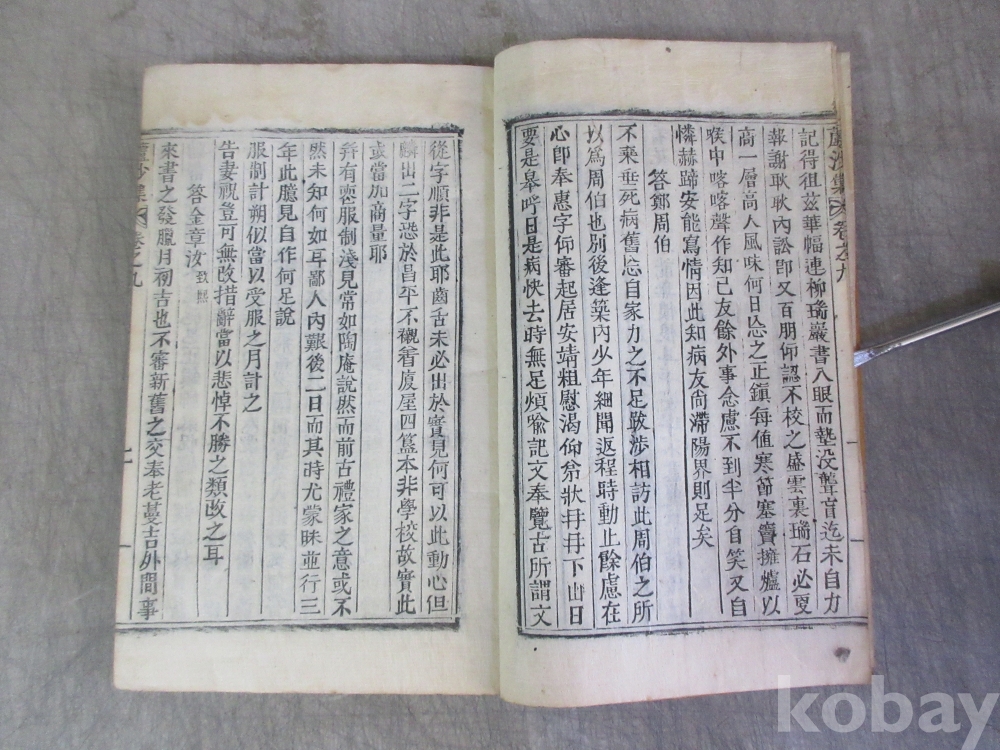 蘆沙集 卷之九
記得徂茲華幅連柳瑞巖書入眼而墊沒聾盲迄未自力
報謝耿耿內訟卽又百朋仰認不校之盛雲裏瑞石必更
高一層高人風味何日忘之正鎭每値寒節塞竇擁爐以
喉中喀喀聲作知己友餘外事念慮不到半分自笑又自
憐赫蹄安能寫情因此知病友尙滯陽界則足矣
答鄭周伯
不棄垂死病舊忘自家力之不足跋涉相訪此周伯之所
以爲周伯也別後逢築內少年細聞返程時動止餘慮在
心卽奉惠字仰審起居安靖粗慰渴仰弟狀冉冉下山日
要是皋呼日是病快去時無足煩喩記文奉覽古所謂文
從字順非是此耶齒舌未必出於實見何可以此動心但
麟出二字恐於昌平不襯着廈屋四簋本非學校故實此
或當加商量耶
幷有喪服制淺見常如陶庵說然而前古禮家之意或不
然未知何如耳鄙人內艱後二日而其時尤蒙昧並行三
年此臆見自作何足說
服制計朔似當以受服之月計之
告妻祝豈可無改措辭當以悲悼不勝之類改之耳
答金章汝 致熙
來書之發臘月初吉也不審新舊之交奉老蔓吉外間事
蘆沙集 卷之九 二
kobay